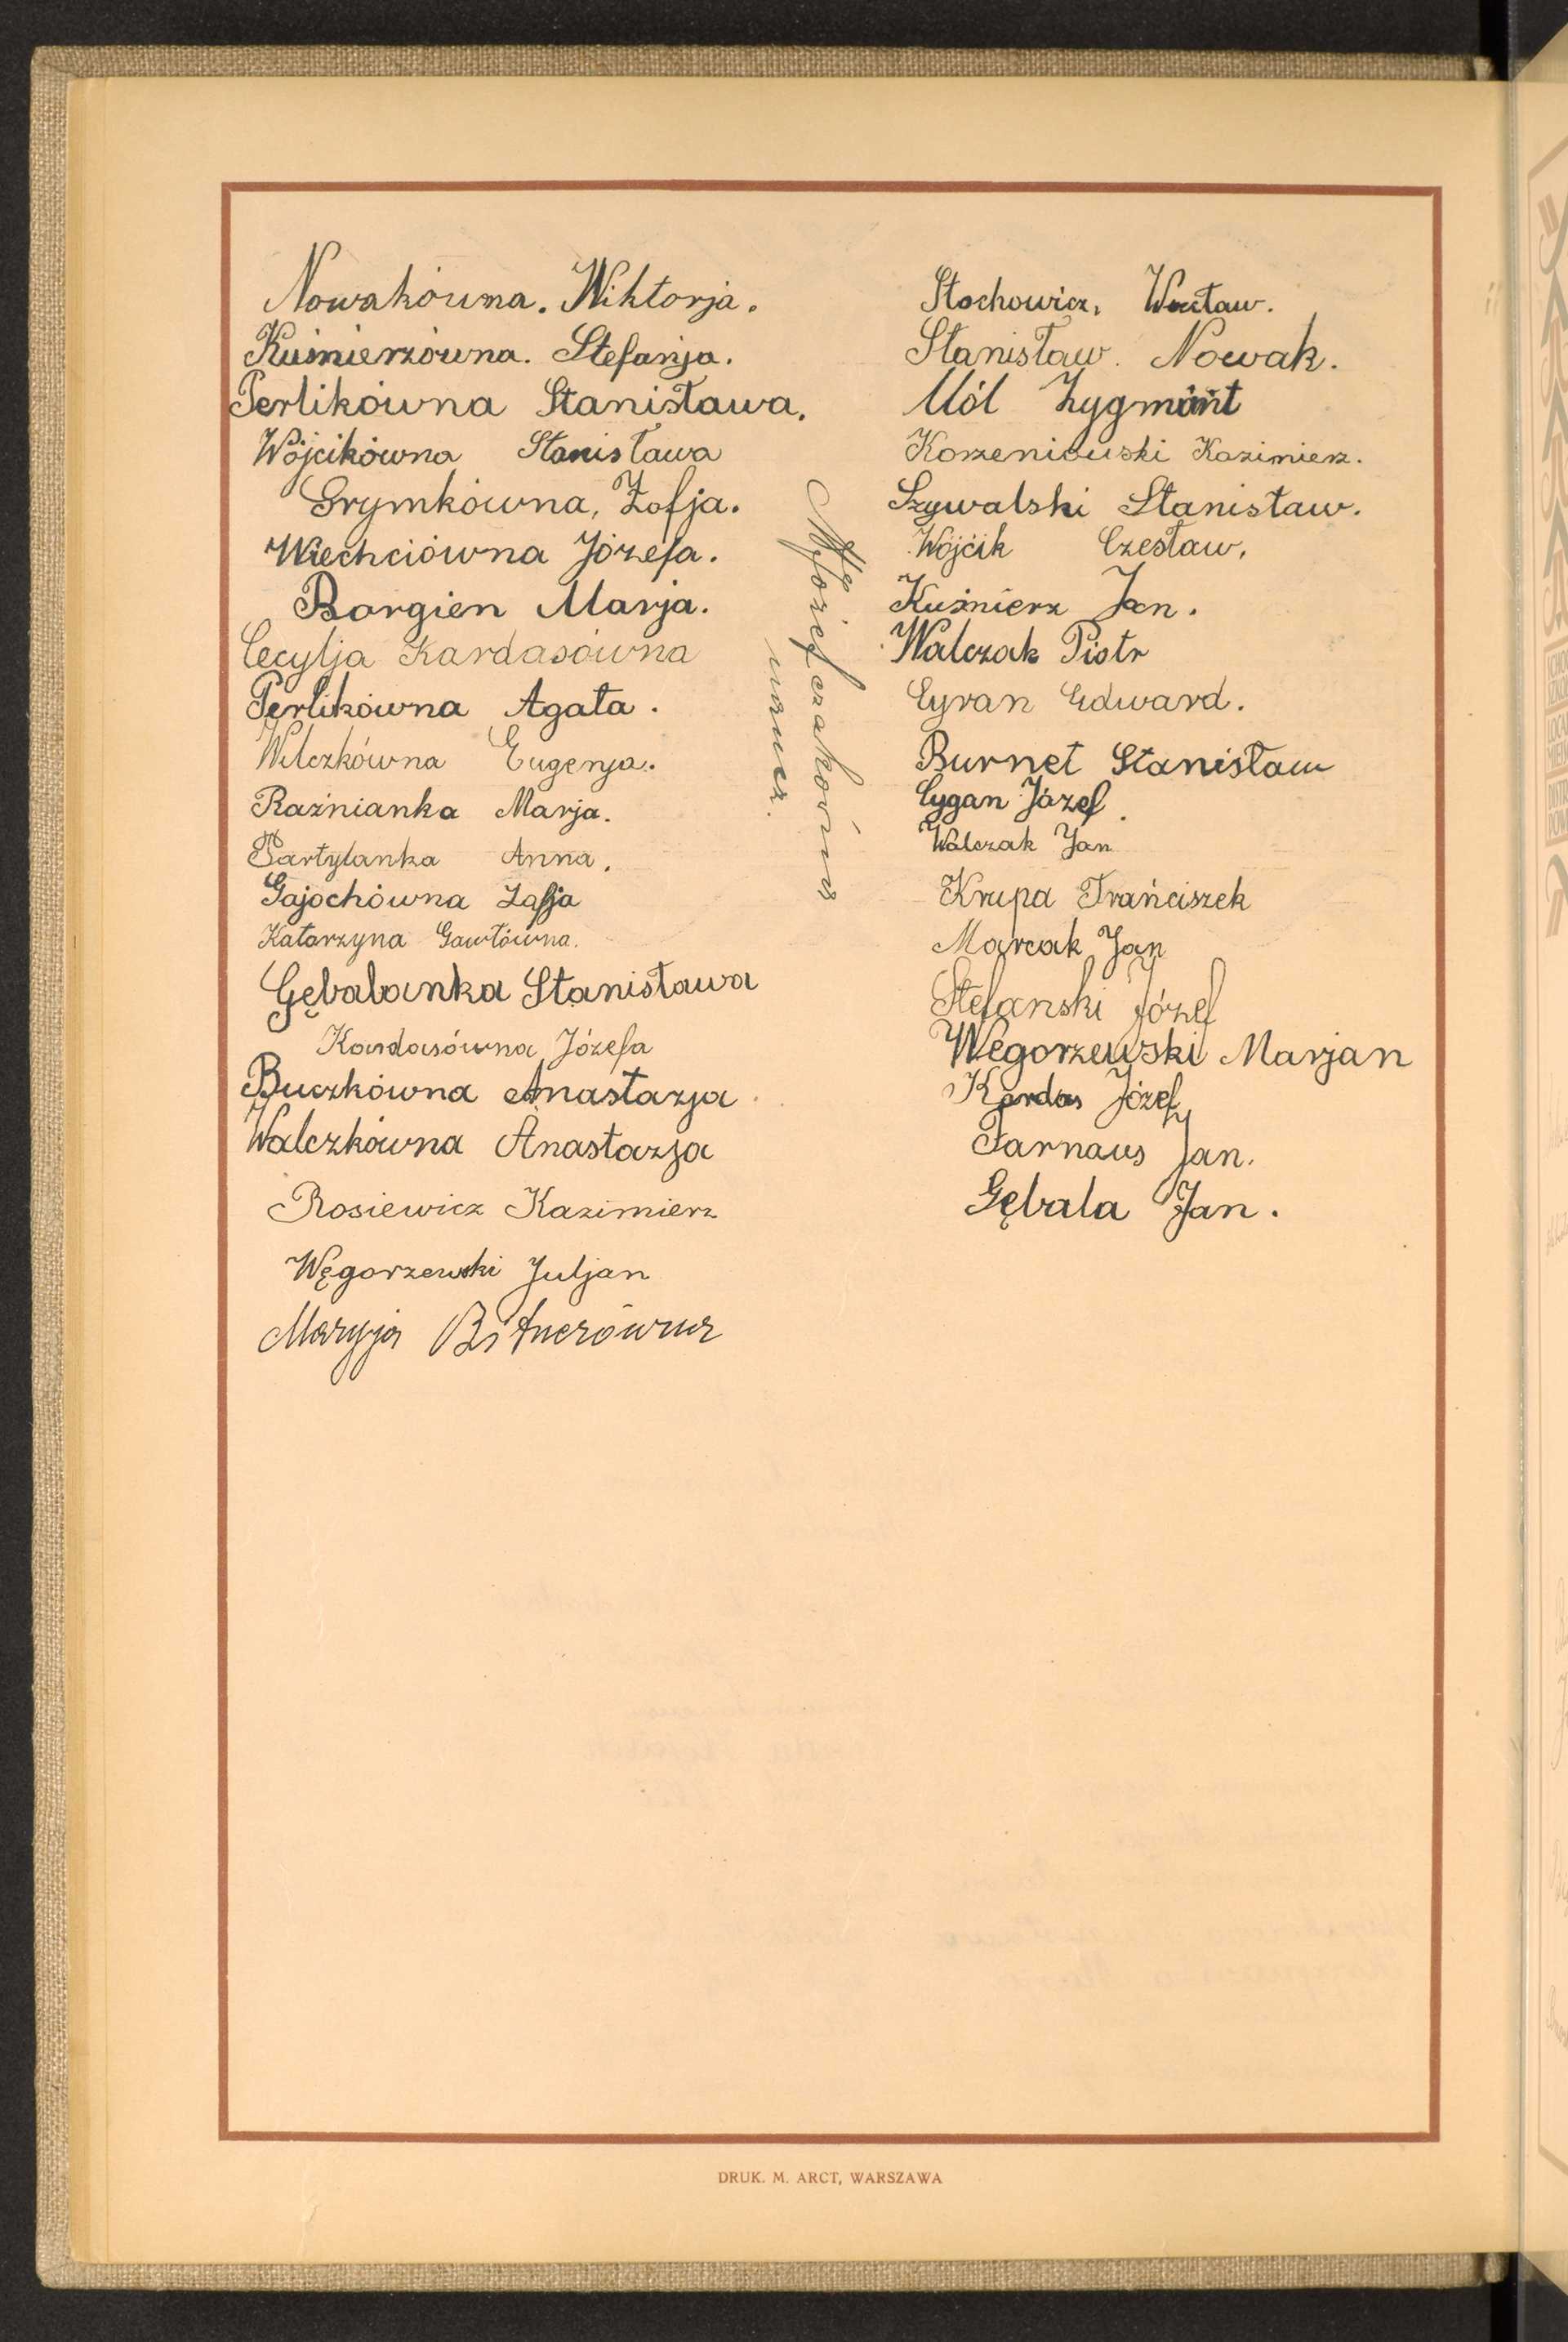 Nowakówna. Wiktorja.
Kuśmierzówna. Stefanja.
Perlikówna Stanisława.
Wójcikówna Stanisława
Grymkówna, Zofja.
Wiechciówna Józefa.
Borgień Marja.
Cecylja Kardasówna
Perlikówna Agata.
Wilczkówna Eugenja.
Raźnianka Marja.
Partylanka Anna.
Gajochówna Zofja
Katarzyna Gawłówna.
Gębalanka Stanisława
Kardasówna Józefa
Buczkówna Anastazja
Walczkówna Anastazja
Rosiewicz Kazimierz
Węgorzewski Juljan
Maryja Bitnerówna
naucz.
Stochowicz, Wacław.
Stanisław. Nowak.
Mól Zygmónt
Korzeniowski Kazimierz.
Szywalski Stanisław.
Wójcik Czesław,
Kuśmierz Jan.
Walczak Piotr
Cyran Edward.
Burnet Stanisław
Cygan Józef.
Walczak Jan
Krupa Frańciszek
Marcak Jan
Stefanski Józef
Węgorzewski Marjan
Kardas Józef
Tarnaus Jan.
Gębala Jan.
DRUK. M. ARCT, WARSZAWA